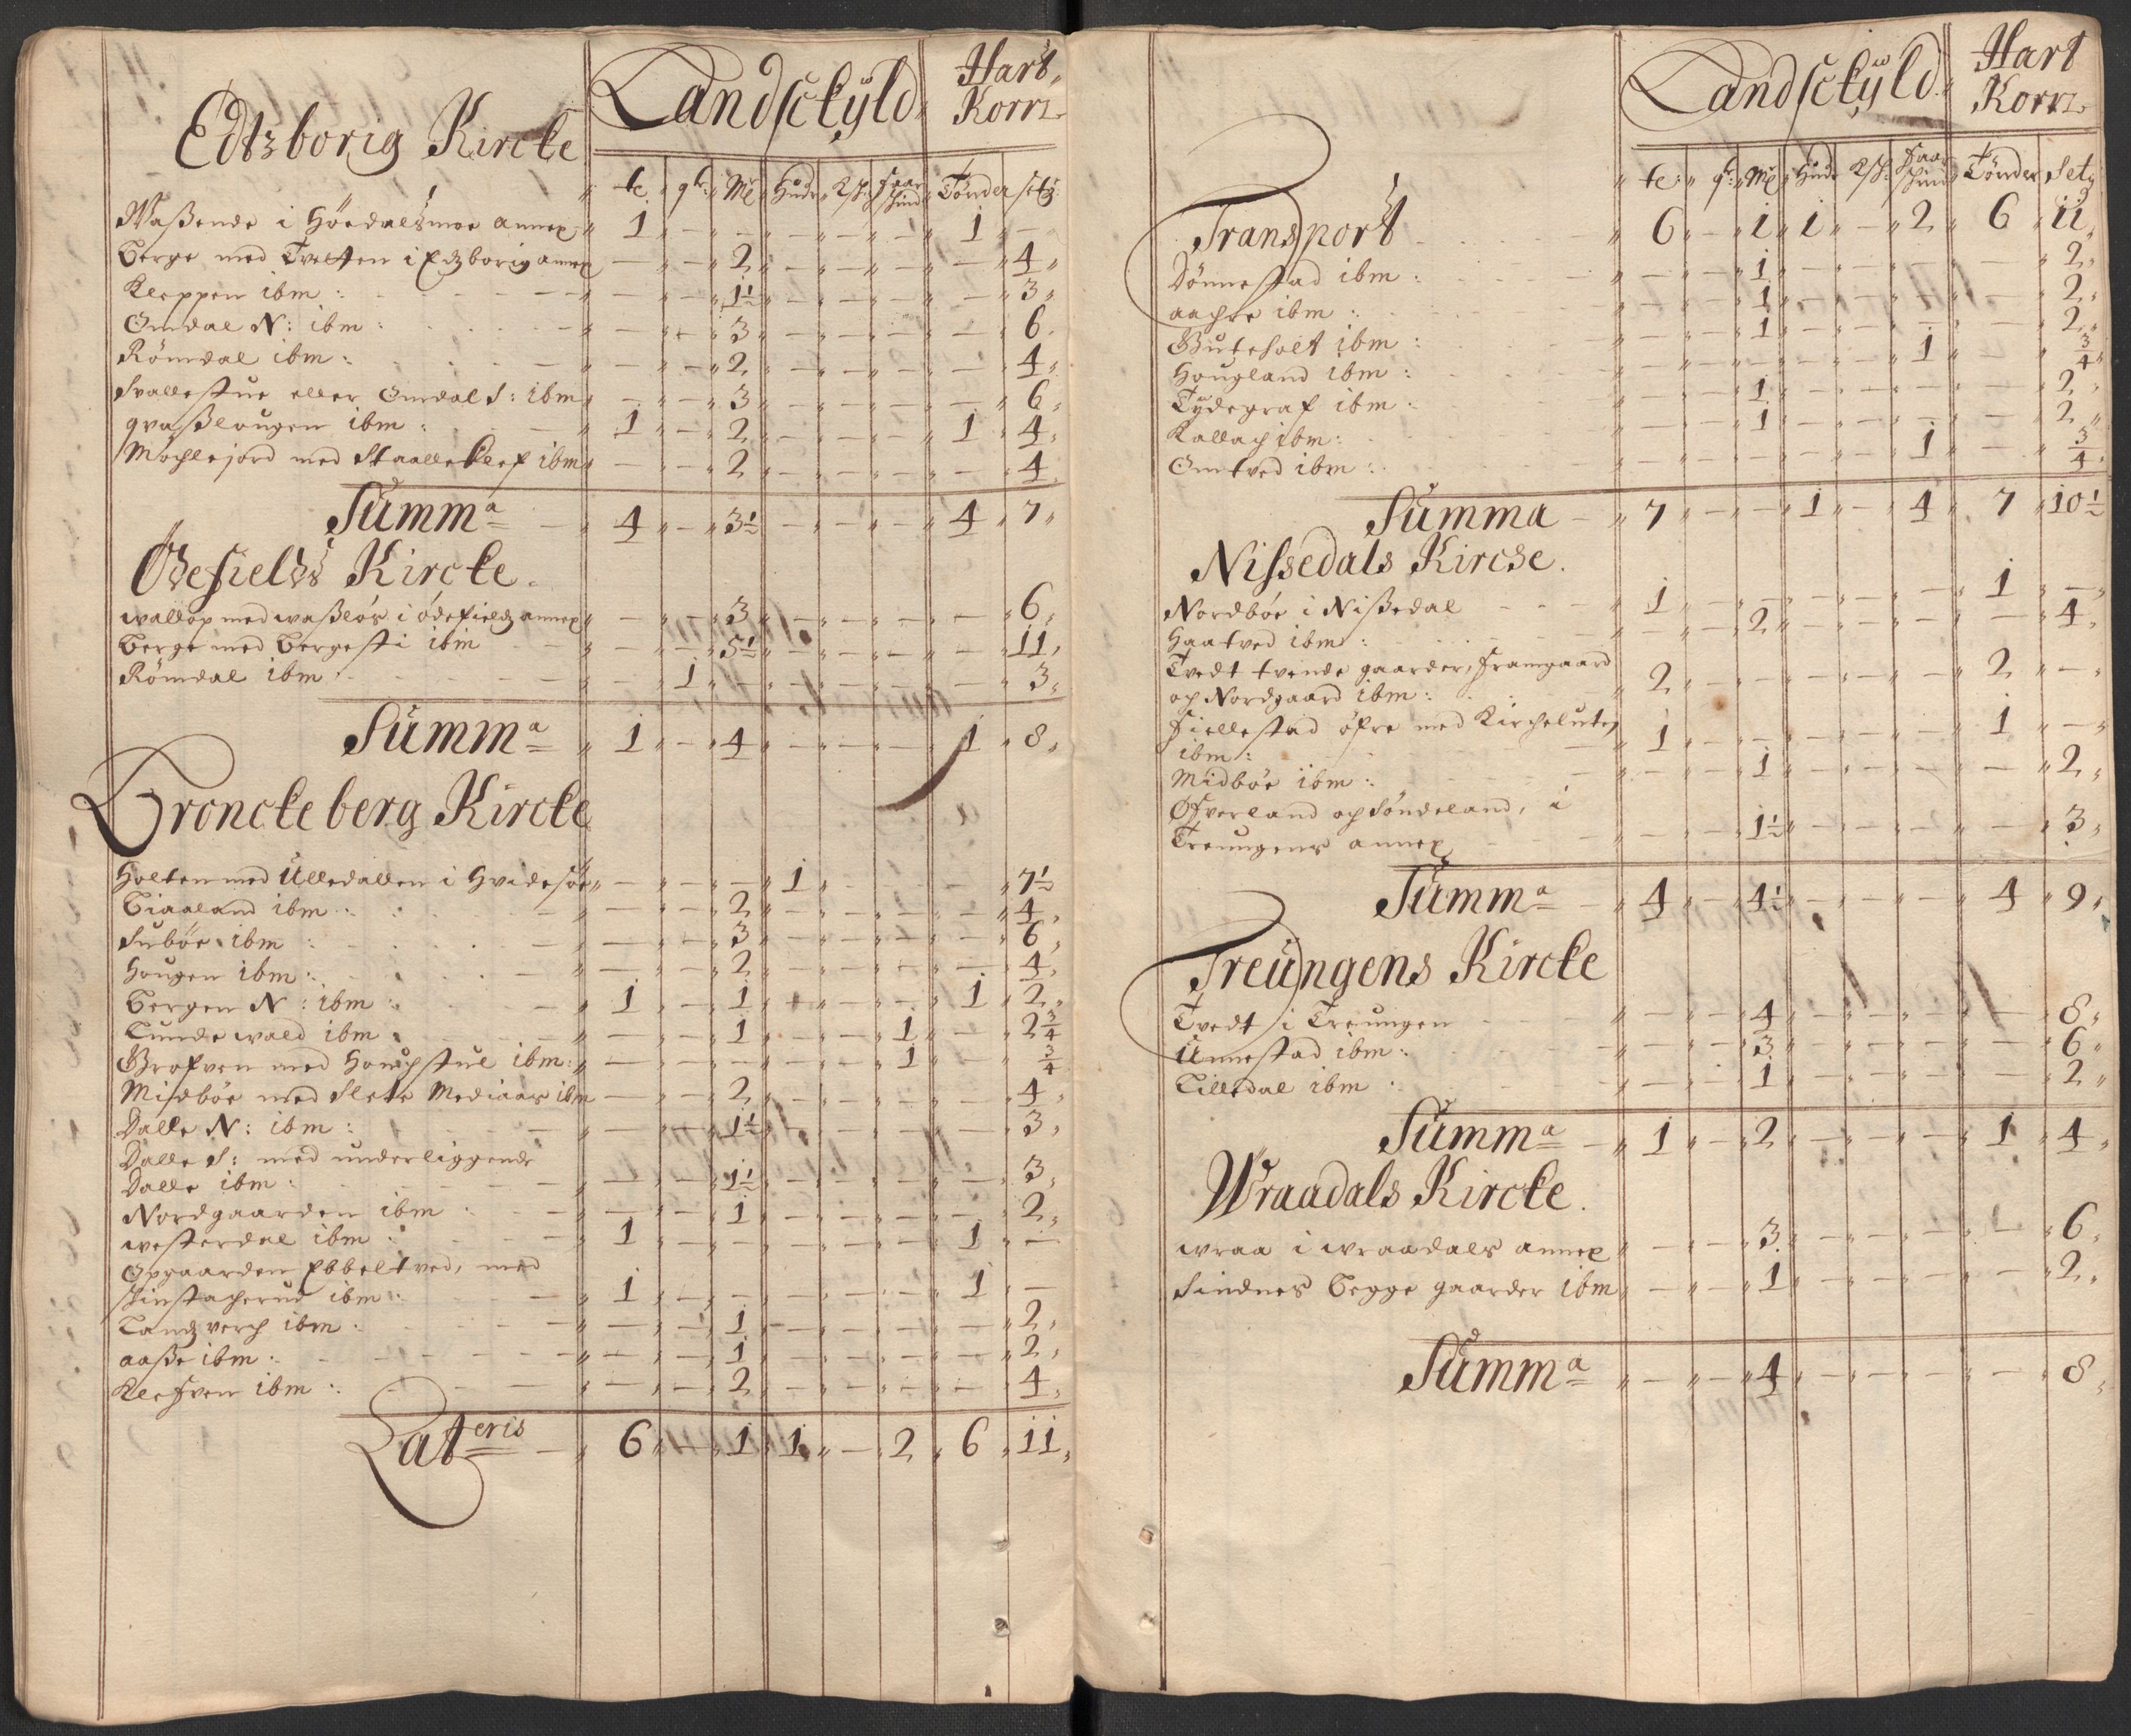 Landschÿld Hart Korn
Edtzborig Kircke
te " qr: " Mk " Hude " K/sk: " faar skind " Tönder " setg:
Waßende i Höedalsmoe annex " 1 " — " — " — " — " — " 1 " —
Berge med Tvetten i Edzborig annex — " — " 2 " — " — " — " — " 4 "
Kleppen ibm : — " — " 1½ " — " — " — " — " 3 "
Omdal N: ibm : — " — " 3 " — " — " — " — " 6 "
Römdal ibm : — " — " 2 " — " — " — " — " 4 "
Svallestue eller Omdal S: ibm — " — " 3 " — " — " — " — " 6 "
qvaßlougen ibm : 1 " — " 2 " — " — " — " 1 " 4 "
Mochlejord med Staalleklef ibm — " — " 2 " — " — " — " — " 4 "
Summa — " 4 " — " 3½ " — " — " — " 4 " 7 "
Ödefields Kircke.
wallop med waßlös i ödefieldz annex " — " — " 3 " — " — " — " — " 6 "
Berge med Bergesti ibm — " — " 5½ " — " — " — " — " 11 "
Römdal ibm — " 1 " — " — " — " — " — " 3 "
Summa " 1 " — " 4 " — " — " — " 1 " 8 "
Bronckeberg Kircke
Holten med Ulledallen i Hvidesöe " — " — " — " 1 " — " — " — " 7½
Biaaland ibm : — " — " 2 " — " — " — " — " 4 "
Suböe ibm : — " — " 3 " — " — " — " — " 6 "
Hougen ibm : — " — " 2 " — " — " — " — " 4 "
Bergen N: ibm : 1 " — " 1 " — " — " — " 1 " 2 "
Lundevald ibm — " — " 1 " — " — " 1 " — " 2¾
Grofven med Houchstul ibm : — " — " — " — " — " 1 " — " ¾
Midböe med Slete Mediaas ibm — " — " 2 " — " — " — " — " 4 "
Dalle N: ibm : — " — " 1½ " — " — " — " — " 3 "
Dalle S: med underliggende
Dalle ibm : — " — " 1½ " — " — " — " — " 3 "
Nordgaarden ibm : — " — " 1 " — " — " — " — " 2 "
westerdal ibm : 1 " — " — " — " — " — " 1 " —
Opgaarden Ebbeltved, med
skinstacherud ibm : 1 " — " — " — " — " — " 1 " —
Langverch ibm : — " — " 1 " — " — " — " — " 2 "
aaße ibm : — " — " 1 " — " — " — " — " 2 "
Klefven ibm : — " — " 2 " — " — " — " — " 4 "
Lateris — " 6 " — " 1 " 1 " — " 2 " 6 " 11 "
Landschÿld Hart Korn
te: " qr: " Mk " Hude " K/sk: " faar skind " Tönder " Setg
Transport " 6 " — " 1 " 1 " — " 2 " 6 " 11 "
Dönnestad ibm : — " — " 1 " — " — " — " — " 2 "
aachre ibm : — " — " 1 " — " — " — " — " 2 "
Buteholt ibm : — " — " 1 " — " — " — " — " 2 "
Hougland ibm : — " — " — " — " — " 1 " — " ¾
Tÿdegraf ibm : — " — " 1 " — " — " — " — " 2 "
Kallach ibm : — " — " 1 " — " — " — " — " 2 "
Omtved ibm : — " — " — " — " — " 1 " — " ¾
Summa — " 7 " — " — " 1 " — " 4 " 7 " 10½
Nissedals Kircke.
Nordböe i Nißedal " 1 " — " — " — " — " — " 1 " —
Haatved ibm : — " — " 2 " — " — " — " — " 4 "
Tvedt tvende gaarder, Framgaard
och Nordgaard ibm : 2 " — " — " — " — " — " 2 " —
Fiellestad öfre med Kirchelutes
ibm : 1 " — " — " — " — " — " 1 " —
Midböe ibm : — " — " 1 " — " — " — " — " 2 "
Öfverland och Söndeland, i
Treungens annex — " — " 1½ " — " — " — " — " 3 "
Summa — " 4 " — " 4½ " — " — " — " 4 " 9 "
Treüngens Kircke
Tvedt i Treungen — " — " 4 " — " — " — " — " 8 "
Unnestad ibm : — " — " 3 " — " — " — " — " 6 "
Lilledal ibm : — " — " 1 " — " — " — " — " 2 "
Summa — " 1 " — " 2 " — " — " — " 1 " 4 "
Wraadals Kircke.
wraa i wraadals annex " — " — " 3 " — " — " — " — " 6 "
Sindnes begge gaarder ibm " — " — " 1 " — " — " — " — " 2 "
Summa " — " — " 4 " — " — " — " — " 8 "